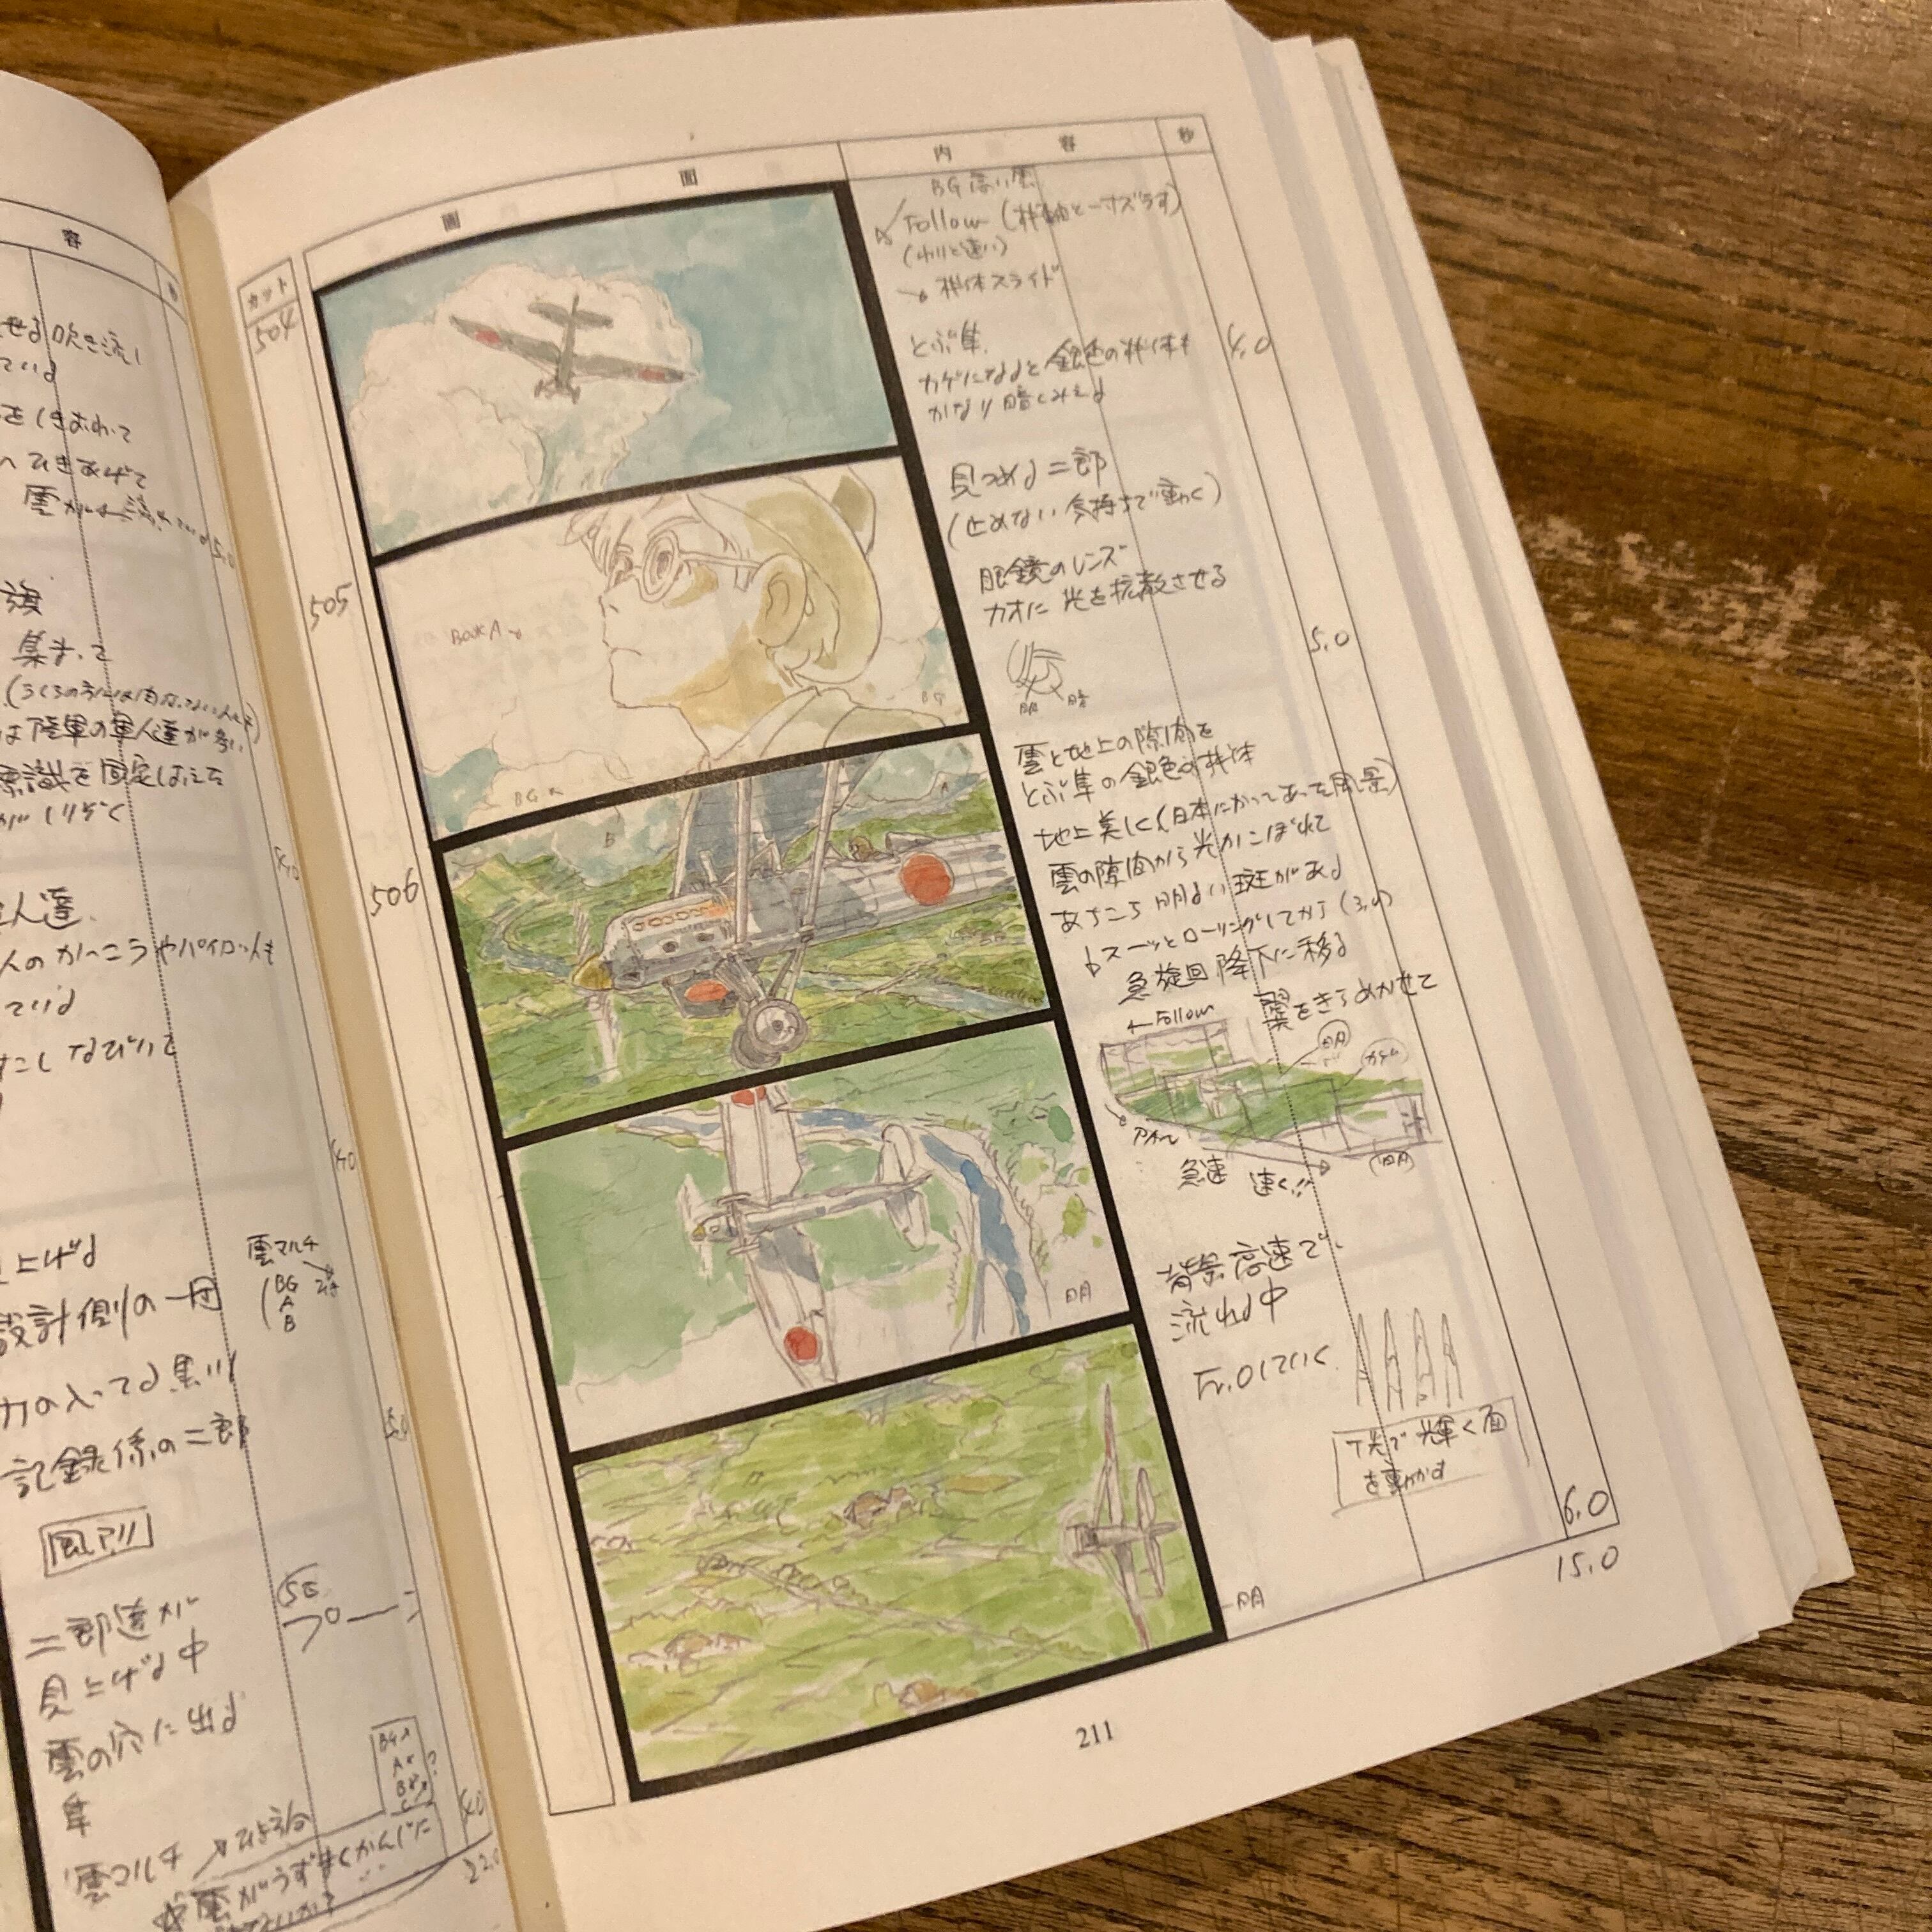 容
せる吹き流し
ている
をしきおわって
ひきあげて
雲が
5.0
旗
集まって
は陸軍の軍人達が多い
4.0
人達
人のかっこうやパイロットも
ている
すこしなびいて
4.0
上げる
設計側の一団
力の入ってる黒川
記録係の二郎
風アリ
雲マルチ
BG
A
B
5.0
二郎達が
見上げる中
雲の穴に出る
隼
雲マルチ
雲がうずまくかんじに
BG
A
B
C
4.0
22.0
カット
画
面
内
容
秒
504
BG 高い雲
Follow (機軸と一寸ズラす)
(わりと速い)
機体スライド
とぶ隼
カゲになると銀色の機体も
かなり暗くみえる
4.0
505
Book A
BG
BG
見つめる二郎
(止めない気持ちで動く)
眼鏡のレンズ
カオに光を拡散させる
明 暗
5.0
506
A
B
雲と地上の隙間を
とぶ隼の銀色の機体
地上美しく(日本にかつてあった風景)
雲の隙間から光がこぼれて
あちこち明るい斑がある
スーッとローリングしてから (3.0)
急旋回降下に移る
翼をきらめかせて
←Follow
明
カゲ
急速 速く!!
明
明
背景高速で
流れる中
Fr.Oしていく
下光で輝く面
を動かす
明
6.0
15.0
211